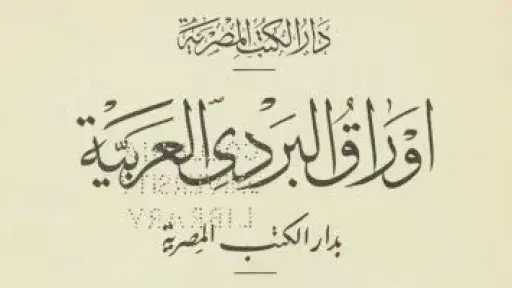 دَارُ الكتبُ المِصْرِيَّة
اَوْرَاقُ البَرْدِىِّ العَرَبِيَّة
بدار الكتب المِصرِيّة
LIBRARY